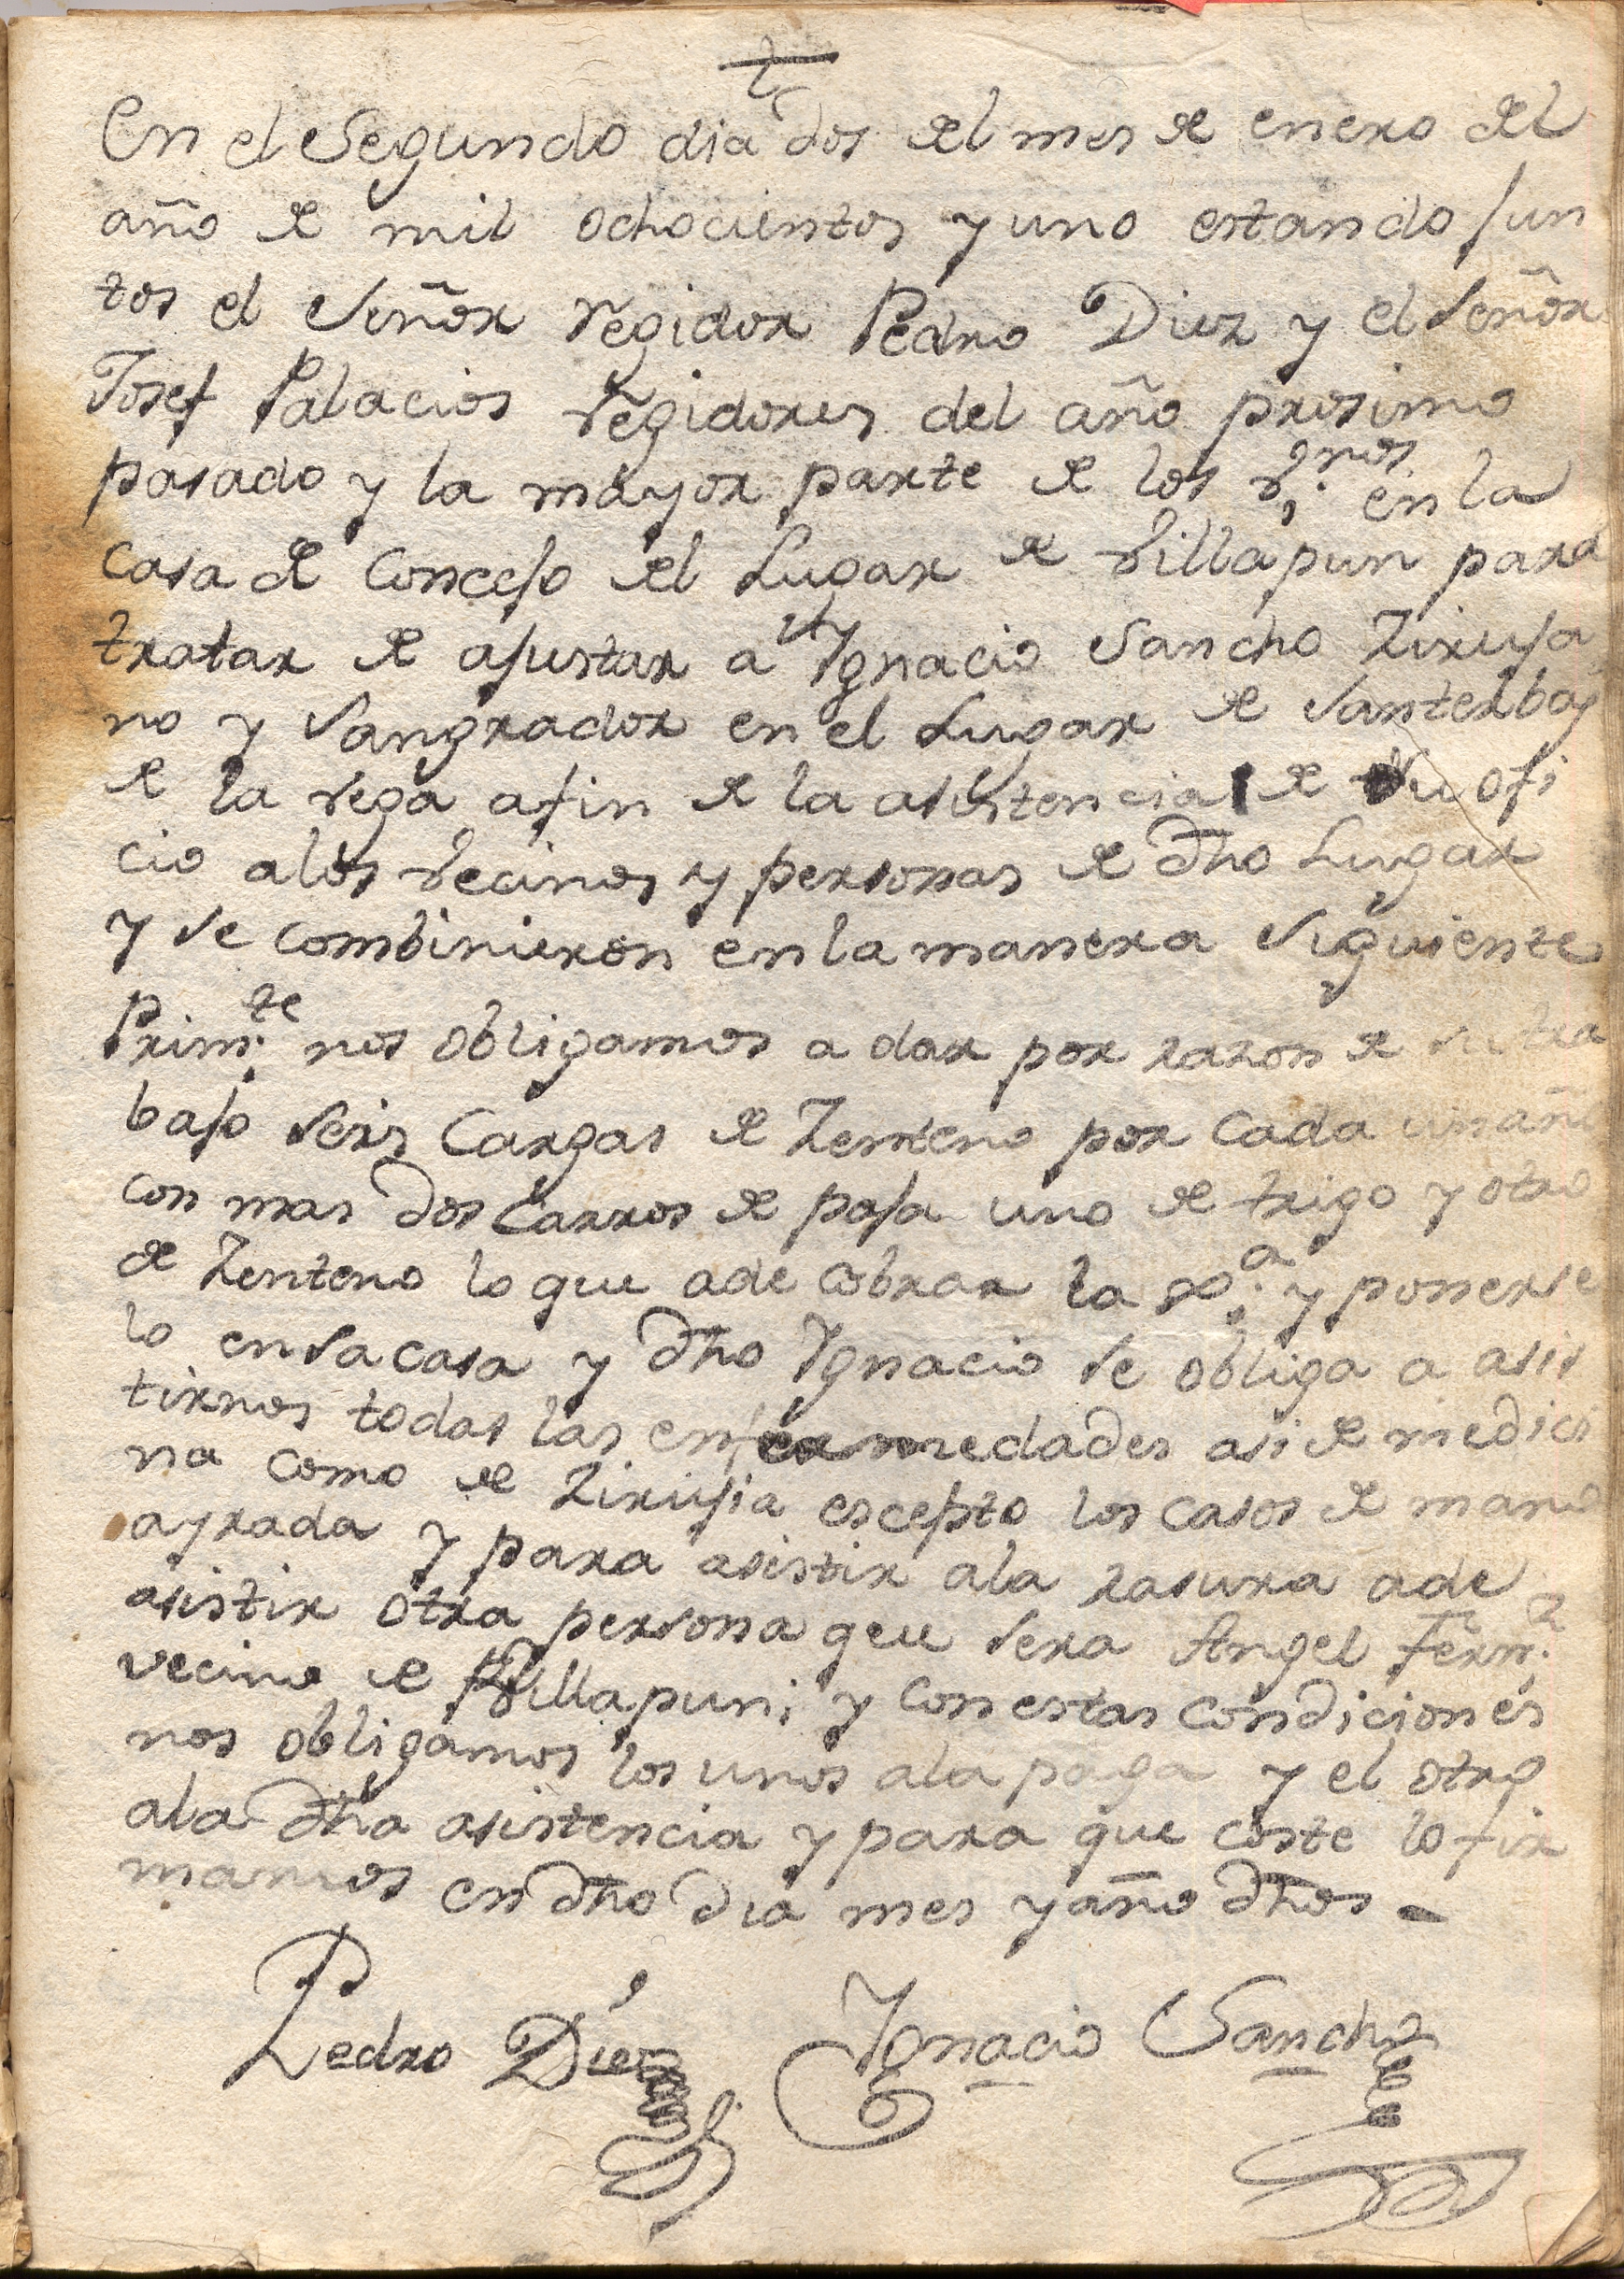 En el Segundo dia dos del mes de enero del
año de mil ochocientos y uno estando jun
tos el Señor regidor Pedro Diez y el Señor
Josef Palacios regidores del año prosimo
pasado y la mayor parte de los v.nos en la
casa de Concejo del Lugar de Villapun para
tratar de ajustar a Ygnacio Sancho Ziruja
no y Sangrador en el Lugar de Santerbas
de la vega afin de la asistencia de su ofi
cio alos vecinos y personas de dho Lugar
y se combinieron en la manera siguiente
Prim.te nos obligamos a dar por razon de su tra
bajo seis Cargas de Zenteno por cada un año
con mas dos Carros de paja uno de trigo y otro
de Zenteno lo que ade cobrar la y ponerse
lo en sa casa y dho Ygnacio se obliga a asis
tirnos todas las enfermedades asi de medici
na como de Zirujia escepto los casos de mano
ayrada y para asistir ala rasura ade
asistir otra persona que sera Angel Fern.z
vecino de Villapun; y con estas condiciones
nos obligamos los unos ala paga y el otro
ala dha asistencia y para que coste lo fir
mamos en dho dia mes y año dhos
Pedro Diez Ygnacio Sancho